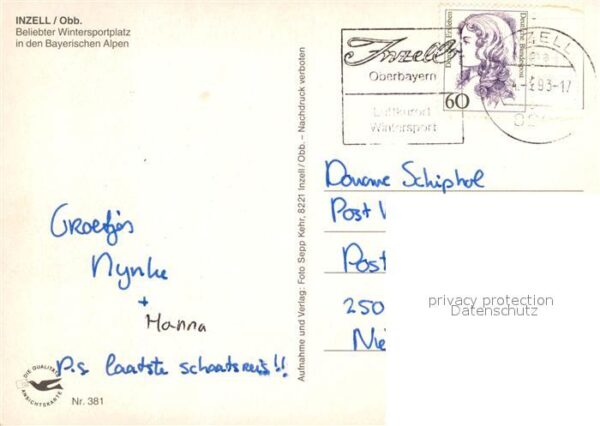 INZELL / Obb.
Beliebter Wintersportplatz
in den Bayerischen Alpen
Inzell
Oberbayern
Luftkurort
Wintersport
Deutsche Bundespost
60
INZELL
93-17
Aufnahme und Verlag: Foto Sepp Kehr, 8221 Inzell/Obb. – Nachdruck verboten
Groetjes
Nynke
+
Hanna
P.S. laatste schaatsreis!!
Douane Schiphol
Post
Post
250
privacy protection
Datenschutz
DIE QUALITÄTS
ANSICHTSKARTE
Nr. 381